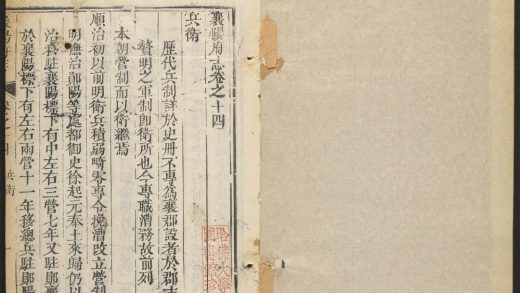 襄陽府志卷之十四
兵衛
歷代兵制詳於史冊不專為襄郡設者於郡
贅明之軍制即衛所也今專職漕務故前列
本朝營制而以衛繼焉
順治初以前明衛兵積弱畸零專令挽漕改立營制
明撫治鄖陽等處都御史徐起元奉土來歸仍以
治移駐襄陽標下有中左右三營七年又駐鄖
於襄陽標下有左右兩營十一年移總兵駐鄖襄
兵衛
一
哈佛大學
圖書館